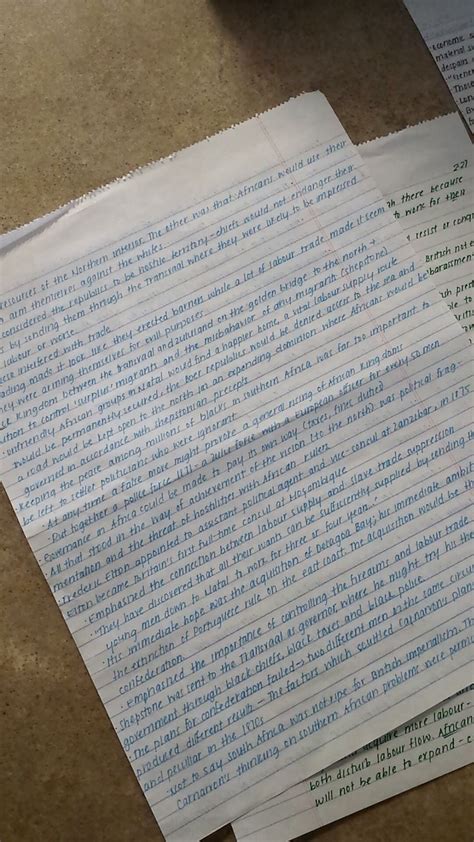 resources of the Northern interior. The other was that Africans would use their
arm themselves against the whites.
considered the republics to be hostile territory - chiefs would not endanger their
by sending them through the Transvaal where they were likely to be impressed
labour or worse.
interfered with trade.
made it look like they erected barriers while a lot of labour trade made it seem
they were arming themselves for evil purposes.
Kingdom between the Transvaal and Zululand on the golden bridge to the north +
to control surplus migrants and the misbehavior of any migrants (Shepstone)
unfriendly African groups in Natal would find a happier home, a vital labour supply route
would be permanently secured, the Boer republics would be denied access to the sea and
a road would be kept open to the north (in an expanding dominion where Africans would be
governed in accordance with Shepstonian precepts
Keeping the peace among millions of blacks in southern Africa was far too important to
be left to settler politicians who were ignorant.
At any time a false move might provoke a general rising of African Kingdoms
Put together a police force with a Zulu force with a European officer for every 50 men
Governance of Africa could be made to pay its own way (taxes, fines, duties)
All that stood in the way of achievement of the vision (to the north) was political frag-
mentation and the threat of hostilities with African rulers
Frederic Elton appointed to assistant political agent and vice-consul at Zanzibar, in 1875
Elton became Britain's first full-time consul at Mozambique
Emphasised the connection between labour supply and slave trade suppression
They have discovered that all their wants can be sufficiently supplied by sending
young men down to Natal to work for three or four years...
His immediate hope was the acquisition of Delagoa Bay; his immediate
the extinction of Portuguese rule on the east coast. The acquisition would be the
confederation.
Emphasised the importance of controlling the firearms and labour trade
Shepstone was sent to the Transvaal as governor where he might try his
government through black chiefs, black taxes and black police.
The plans for confederation failed -> two different men in the same circum
produced different results - The factors which scuttled Carnarvons plans
and peculiar in the 1870s
Not to say South Africa was not ripe for British imperialism. Th
Carnarvons thinking on southern African problems were perm
economic s
material
despair
Those
227
there because
to work for
resist or
British
prest
acquire more labour -
both disturb labour flow. African
will not be able to expand - c